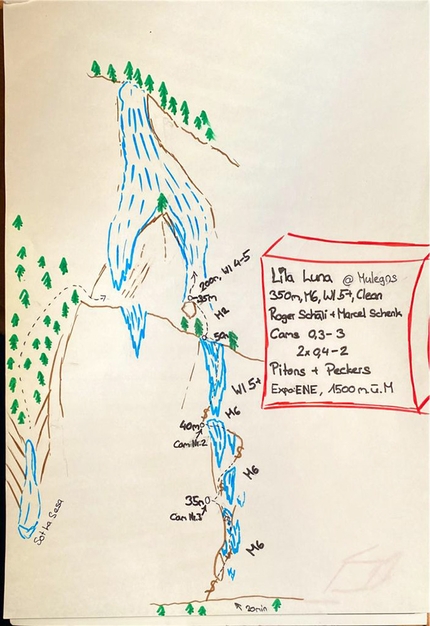 200m, WI 4-5
35m
M2
50
WI 5+
M6
40m
Cam Nr. 2
M6
35m
Cam Nr. 3
M6
20min
Sot La Sesa
Lila Luna @ Mulegns
350m, M6, WI 5+, Clean
Roger Schäli + Marcel Schenk
Cams 0,3-3
2x 0,4-2
Pitons + Peckers
Expo: ENE, 1500 m ü. M